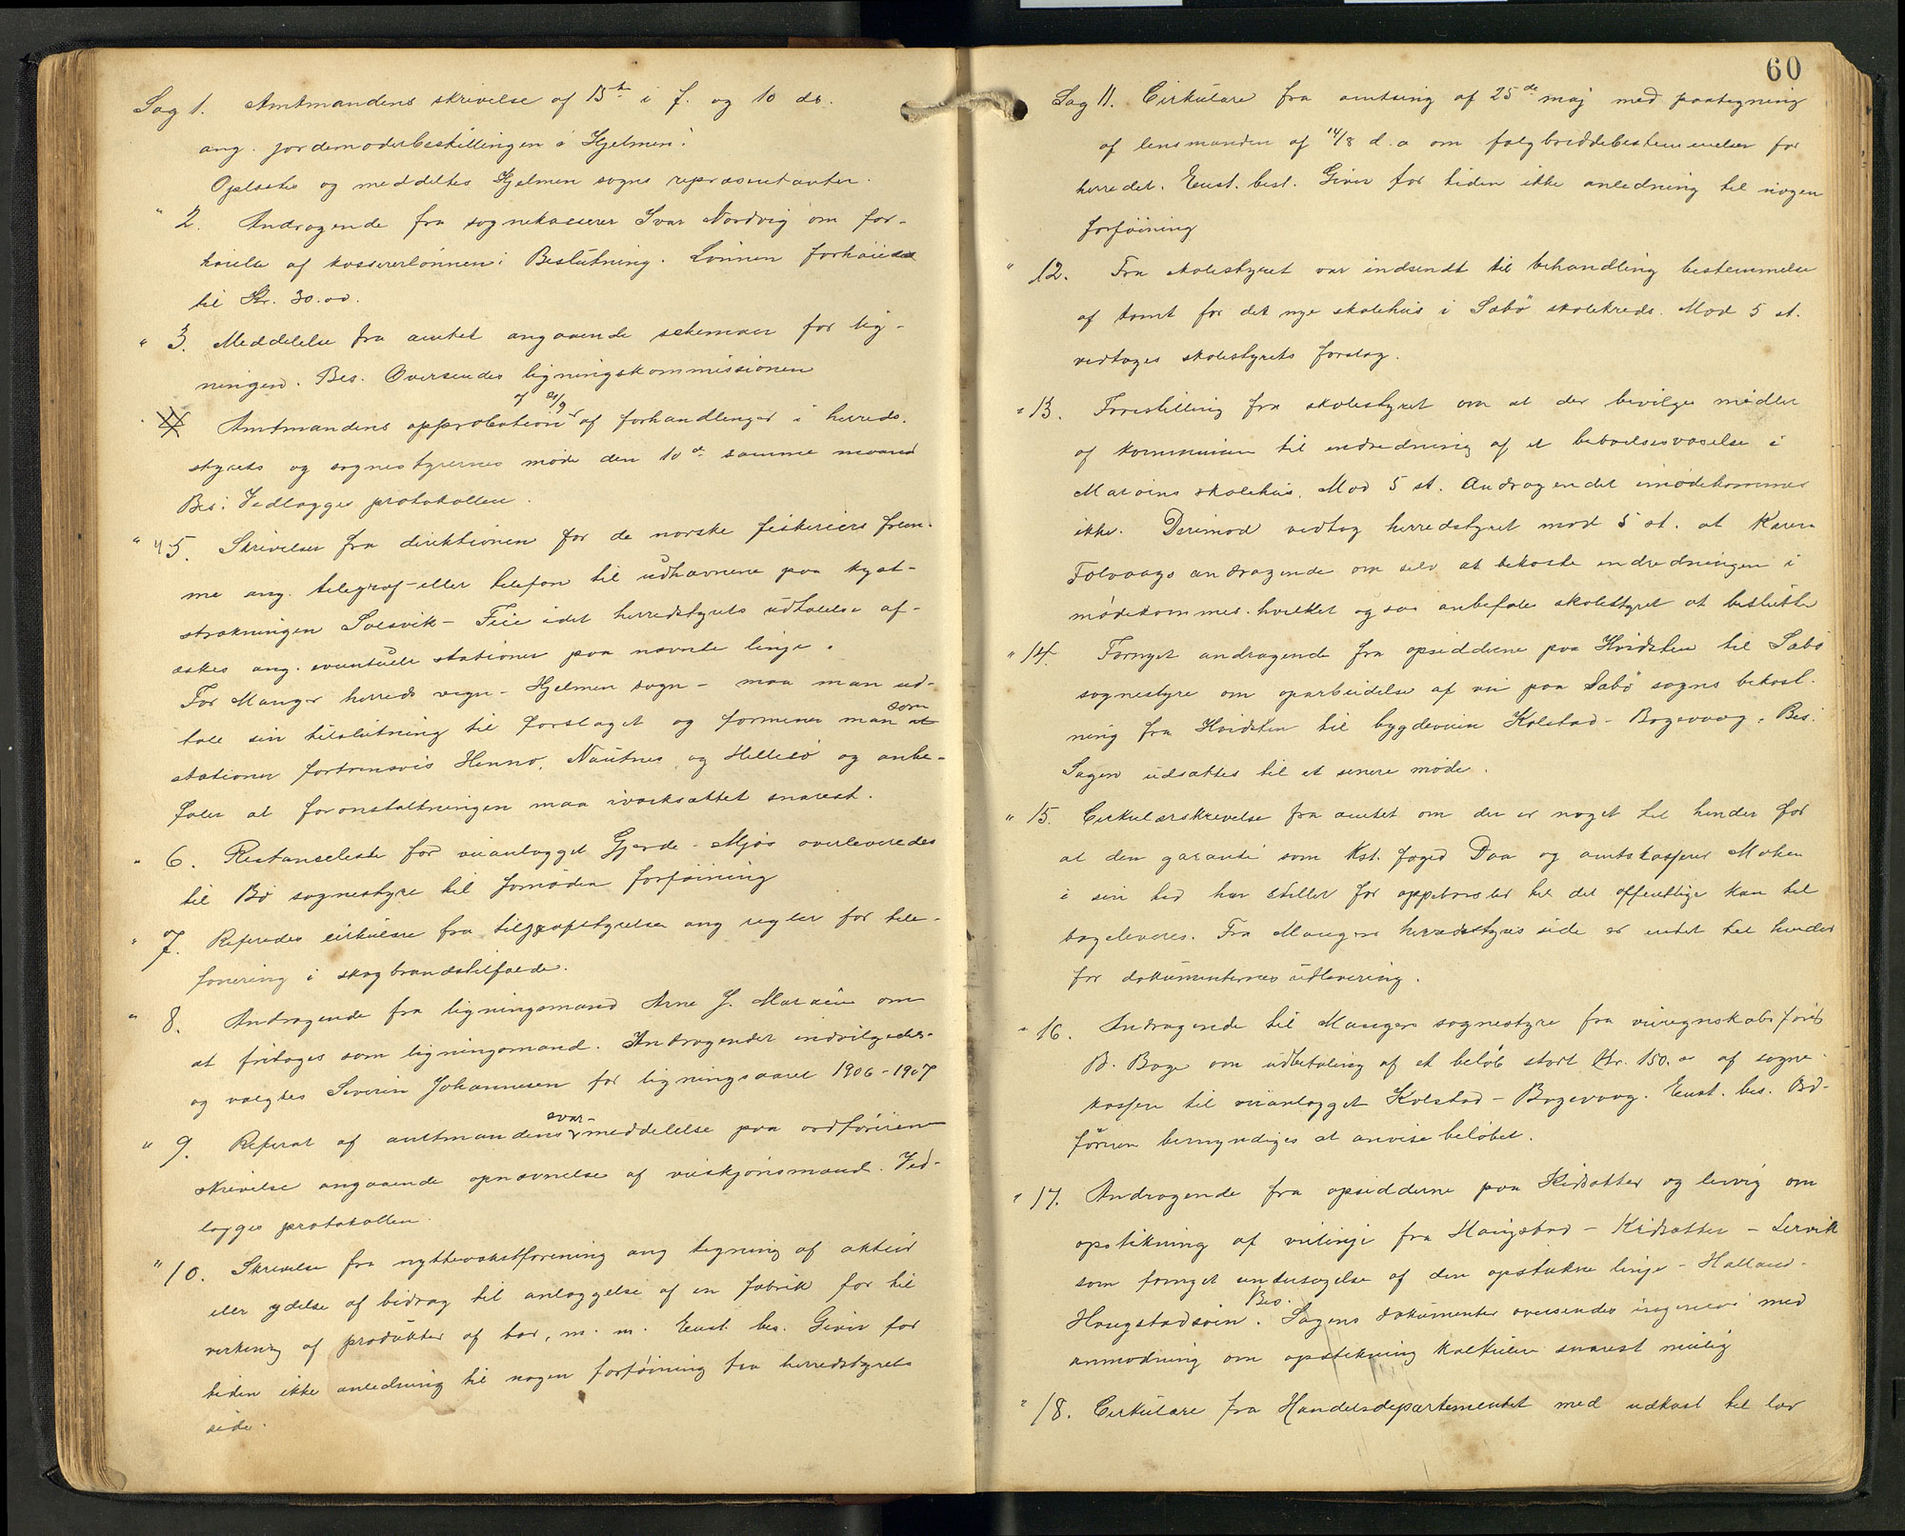 Sag 1. Amtmandens skrivelse af 15de i f. og 10 ds.
ang. jordemoderbestillingen i Hjelmen:
Oplæstes og meddeltes Hjelmen sogns repræsentanter.
" 2. Andragende fra sognekasserer Ivar Nordvig om for-
høielse af kassererlønnen: Beslutning. Lønnen forhøies
til Kr. 30.00.
" 3. Meddelelse fra amtet angaaende schemaer for lig-
ningen. Bes. Oversendes ligningskommissionen
" 4 Amtmandens approbation af 21/9 af forhandlinger i herreds-
styrets og sognestyrernes møde den 10de samme maaned
Bes: Vedlægges protokollen.
" 5. Skrivelse fra direktionen for de norske fiskeriers frem-
me ang. telegraf- eller telefon til udhavnene paa kyst-
strækningen Solsvik - Feie idet herredstyrets udtalelse af-
æskes ang. eventuelle stationer paa nævnte linje.
For Manger herreds vegn - Hjelmen sogn - maa man ud-
tale sin tilslutning til forslaget og formener man som
stationer fortrinsvis Hernø, Nautnes, og Hellesø og anbe-
faler at foranstaltningen maa iværksættet snarest.
" 6. Restanseliste for veianlægget Gjerde - Mjøs overleveredes
til Bø sognestyre til fornøden forføining
" 7. Referedes cirkulære fra telegrafstyrelsen ang regler for tele-
fonering i skogbrandstilfælde.
" 8. Andragende fra ligningsmand Arne J. Marøen om
at fritages som ligningsmand. Andragendet indvilgedes
og valgtes Severin Johannesen for ligningsaaret 1906-1907
" 9. Referat af amtmandens svar-meddelelse paa ordførerens
skrivelse angaaende opnævnelse af veiskjønsmænd. Ved-
lægges protokollen.
" 10. Skrivelse fra nyttevækstforening ang tegning af aktier
eller ydelse af bidrag til anlæggelse af en fabrik for til
virkning af produkter af bær, m. m. Enst. bes. Giver for
tiden ikke anledning til nogen forføining fra herredstyrets
side.
60
Sag 11. Cirkulære fra amtsing af 25de maj med paategning
af lensmanden af 14/8 d. a om fælgbreddebestemmelser for
herredet. Enst. besl. Giver for tiden ikke anledning til nogen
forføining
" 12. Fra skolestyret var indsendt til behandling bestemmelse
af tomt for det nye skolehus i Sæbø skolekreds. Mod 5 st.
vedtages skolestyrets forslag.
" 13. Forestilling fra skolestyret om at der bevilges midler
af kommunen til indredning af et beboelsesværelse i
Marøens skolehus. Mod 5 st. Andragendet imødekommes
ikke. Derimod vedtog herredstyret mod 5 st. at Karen
Tolvaags andragende om selv at bekoste indredningen i
mødekommes. hvilket ogsaa anbefales skolestyret at beslutte
" 14. Fornyet andragende fra opsidderne paa Hvidsten til Sæbø
sognestyre om oparbeidelse af vei paa Sæbø sogns bekost-
ning fra Hvidsten til bygdeveien Kolstad - Bogevaag. Bes.
Sagen udsættes til et senere møde.
" 15. Cirkulærskrivelse fra amtet om der er noget til hinder for
at den garanti som Kst. foged Daa og amtskasserer Mohn
i sin tid har stillet for oppebørsler til det offentlige kan til
bageleveres. Fra Mangers herredsstyres side er intet til hinder
for dokumenternes udlevering.
" 16. Andragende til Mangers sognestyre fra veiregnskabsfører
B. Boge om udbetaling af et beløb stort Kr. 150.00 af sogne-
kassen til veianlægget Kolstad - Bogevaag. Enst. bes. Ord-
føreren bemyndiges at anvise beløbet.
" 17. Andragende fra opsidderne paa Kidsætter og lervig om
opstikning af veilinje fra Haugstad - Kidsætter - Lervik
som fornyet undersøgelse af den opstukne linje - Halland-
Haugstadsøen. Bes. Sagens dokumenter oversendes ingeniør med
anmodning om opstikning kalkule snarest mulig
" 18. Cirkulære fra Handelsdepartementet med udkast til lov